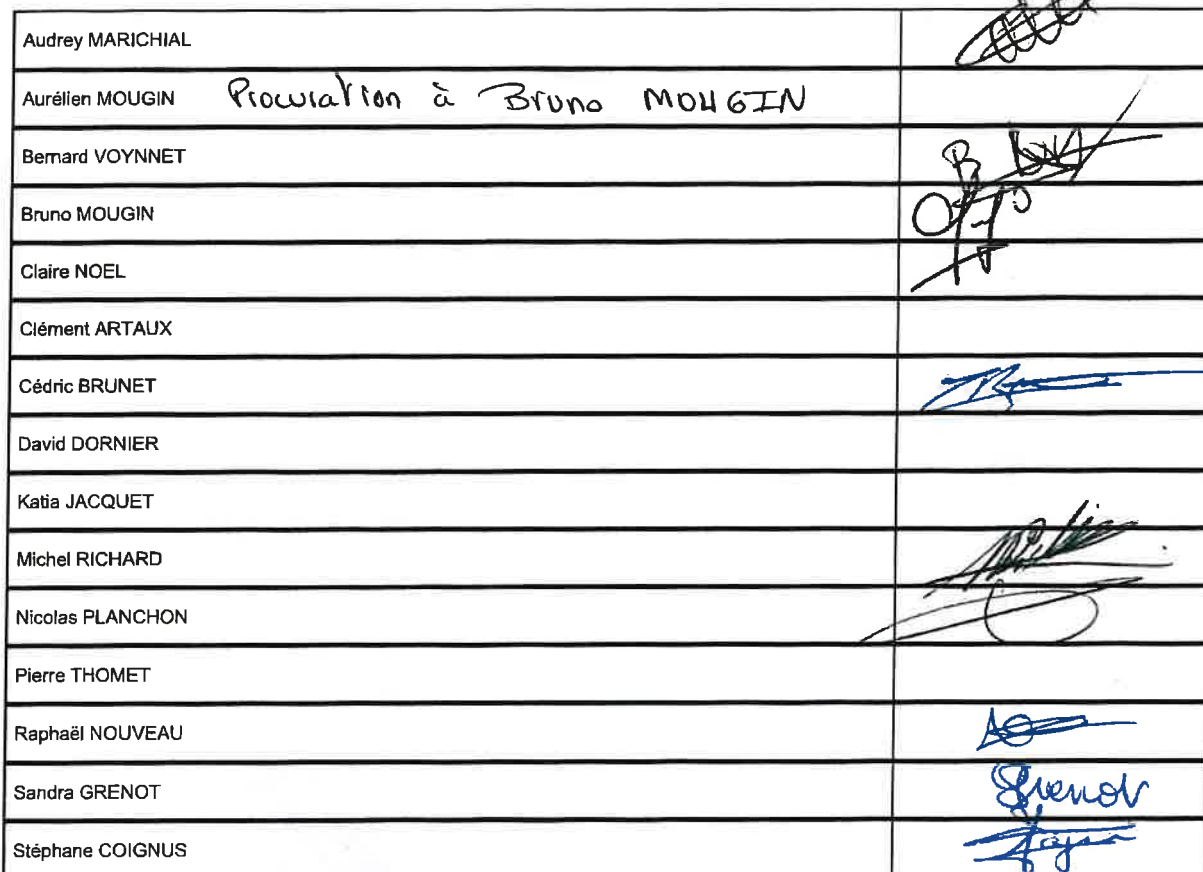 Audrey MARICHIAL
Aurélien MOUGIN Procuration à Bruno MOUGIN
Bernard VOYNNET
Bruno MOUGIN
Claire NOEL
Clément ARTAUX
Cédric BRUNET
David DORNIER
Katia JACQUET
Michel RICHARD
Nicolas PLANCHON
Pierre THOMET
Raphaël NOUVEAU
Sandra GRENOT Grenot
Stéphane COIGNUS